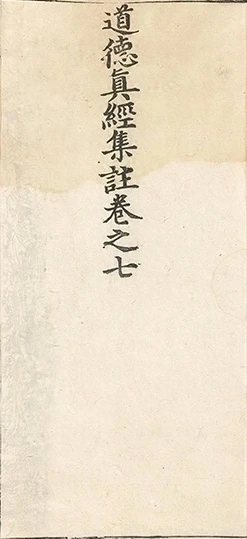 道德真經集註卷之七